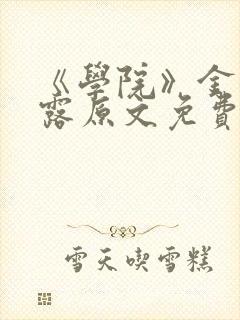 《學院》金
露原文免費
雪天喫雪糕